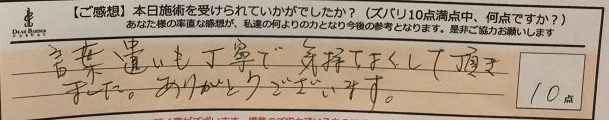 【ご感想】本日施術を受けられていかがでしたか？（ズバリ10点満点中、何点ですか？）
DEAR BARBER
CASUAL
あなた様の率直な感想が、私達の何よりの力となり今後の参考となります。是非ご協力お願いします
言葉遣いも丁寧で気持ちよくして頂き
ました。ありがとうございます。
10点